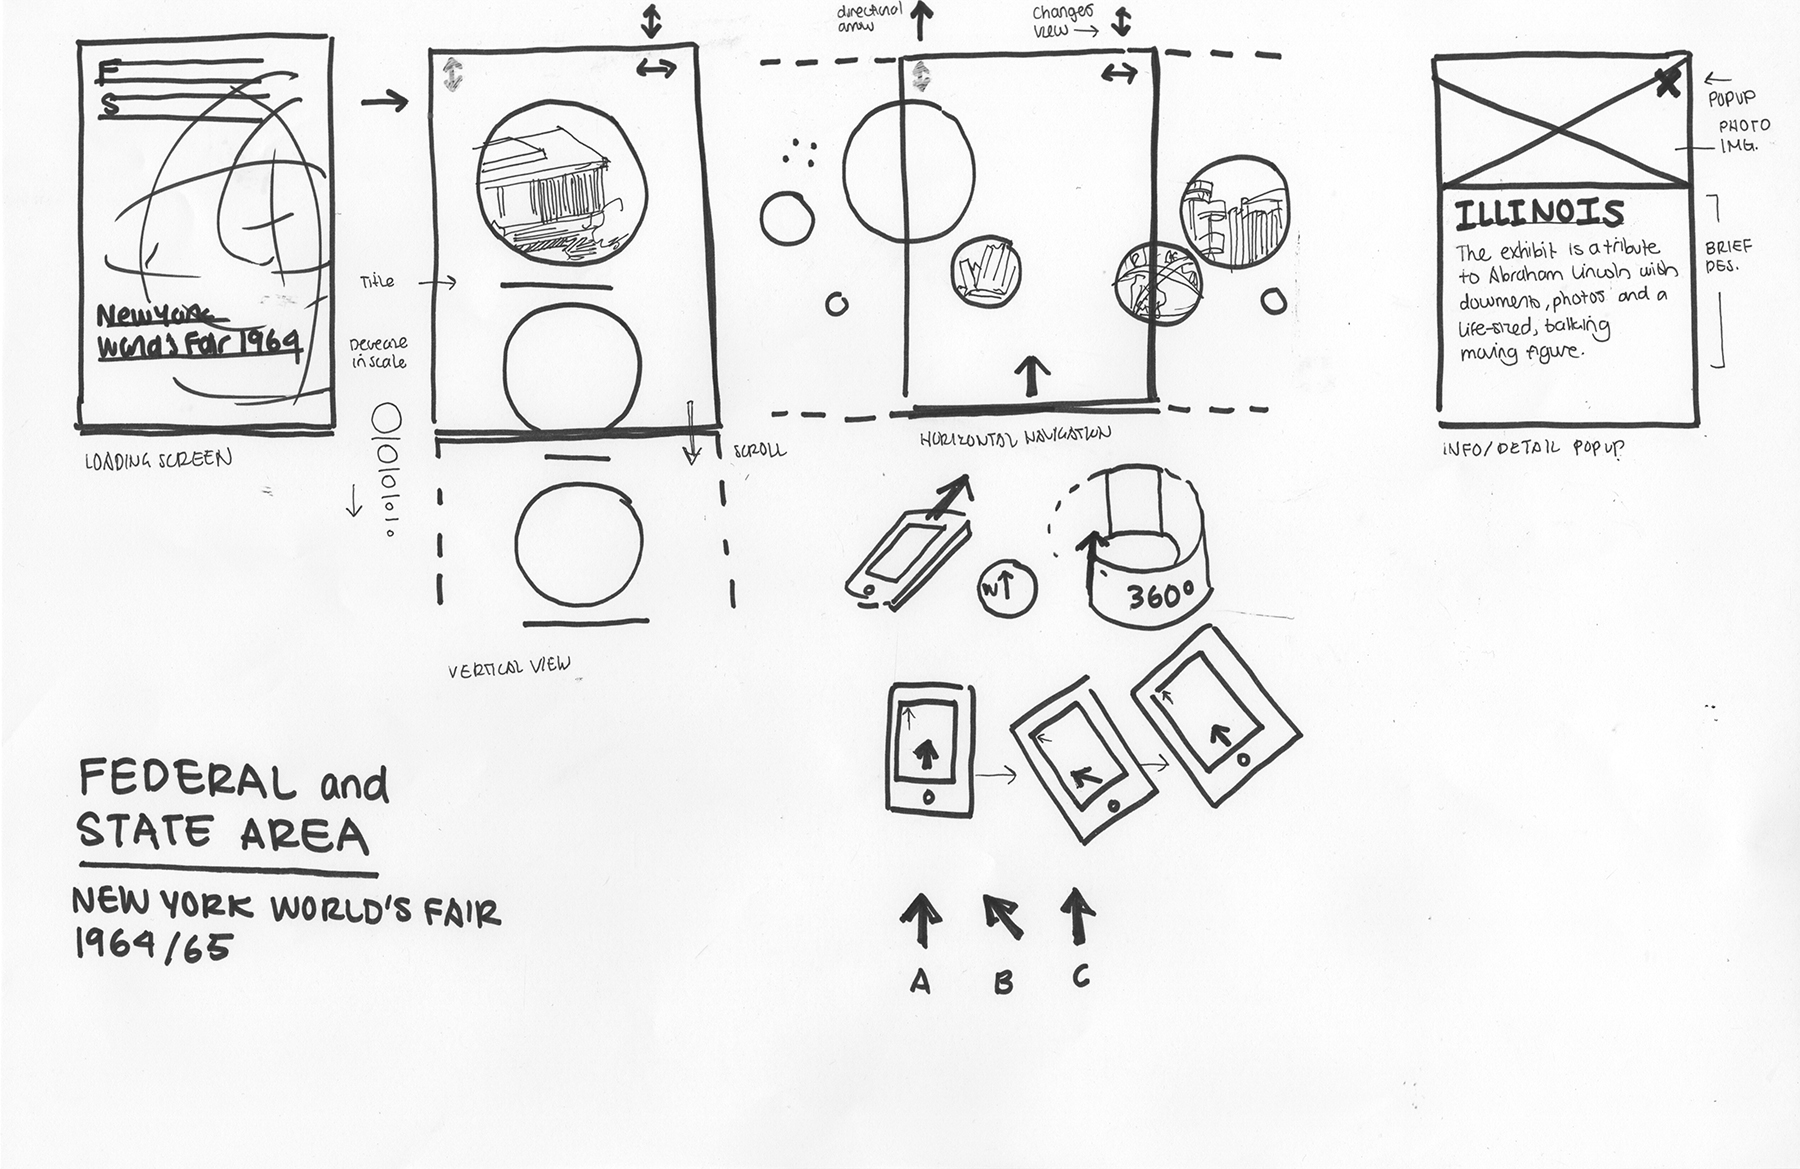 F
S
New York
World's Fair 1964
LOADING SCREEN
Title
Decrease
in scale
SCROLL
VERTICAL VIEW
directional
arrow
Changes
view
HORIZONTAL NAVIGATION
N
360°
A
B
C
X
POPUP
PHOTO
IMG.
ILLINOIS
The exhibit is a tribute
to Abraham Lincoln with
documents, photos and a
life-sized, talking
moving figure.
BRIEF
DES.
INFO/DETAIL POPUP
FEDERAL and
STATE AREA
NEW YORK WORLD'S FAIR
1964/65